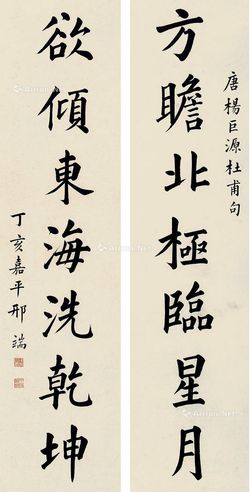 唐楊巨源杜甫句
方瞻北極臨星月
欲傾東海洗乾坤
丁亥嘉平邢端